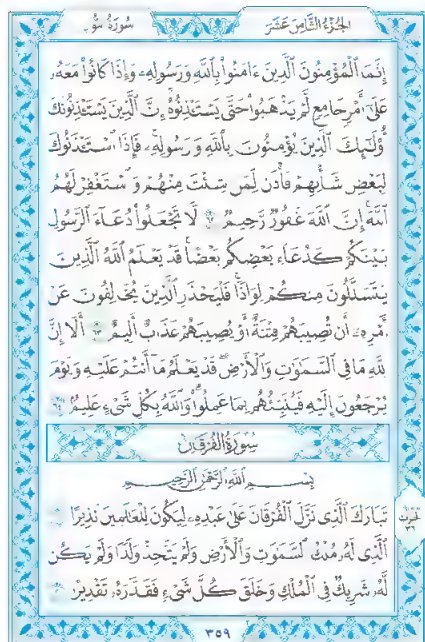 الجزء الثامن عشر
سورة النور
إِنَّمَا الْمُؤْمِنُونَ الَّذِينَ ءَامَنُوا بِاللَّهِ وَرَسُولِهِ وَإِذَا كَانُوا مَعَهُ
عَلَىٰ أَمْرٍ جَامِعٍ لَّمْ يَذْهَبُوا حَتَّىٰ يَسْتَـْٔذِنُوهُ إِنَّ الَّذِينَ يَسْتَـْٔذِنُونَكَ
أُو۟لَـٰٓئِكَ الَّذِينَ يُؤْمِنُونَ بِاللَّهِ وَرَسُولِهِ فَإِذَا اسْتَـْٔذَنُوكَ
لِبَعْضِ شَأْنِهِمْ فَأْذَن لِّمَن شِئْتَ مِنْهُمْ وَاسْتَغْفِرْ لَهُمُ
اللَّهَ إِنَّ اللَّهَ غَفُورٌ رَّحِيمٌ ٦٢ لَّا تَجْعَلُوا دُعَاءَ الرَّسُولِ
بَيْنَكُمْ كَدُعَاءِ بَعْضِكُم بَعْضًا قَدْ يَعْلَمُ اللَّهُ الَّذِينَ
يَتَسَلَّلُونَ مِنكُمْ لِوَاذًا فَلْيَحْذَرِ الَّذِينَ يُخَالِفُونَ عَنْ
أَمْرِهِ أَن تُصِيبَهُمْ فِتْنَةٌ أَوْ يُصِيبَهُمْ عَذَابٌ أَلِيمٌ ٦٣ أَلَا إِنَّ
لِلَّهِ مَا فِي السَّمَـٰوَٰتِ وَالْأَرْضِ قَدْ يَعْلَمُ مَا أَنتُمْ عَلَيْهِ وَيَوْمَ
يُرْجَعُونَ إِلَيْهِ فَيُنَبِّئُهُم بِمَا عَمِلُوا وَاللَّهُ بِكُلِّ شَىْءٍ عَلِيمٌ ٦٤
سورة الفرقان
بِسْمِ اللَّهِ الرَّحْمَـٰنِ الرَّحِيمِ
تَبَارَكَ الَّذِي نَزَّلَ الْفُرْقَانَ عَلَىٰ عَبْدِهِ لِيَكُونَ لِلْعَالَمِينَ نَذِيرًا
الَّذِي لَهُ مُلْكُ السَّمَـٰوَٰتِ وَالْأَرْضِ وَلَمْ يَتَّخِذْ وَلَدًا وَلَمْ يَكُن
لَّهُ شَرِيكٌ فِي الْمُلْكِ وَخَلَقَ كُلَّ شَىْءٍ فَقَدَّرَهُ تَقْدِيرًا
٣٥٩